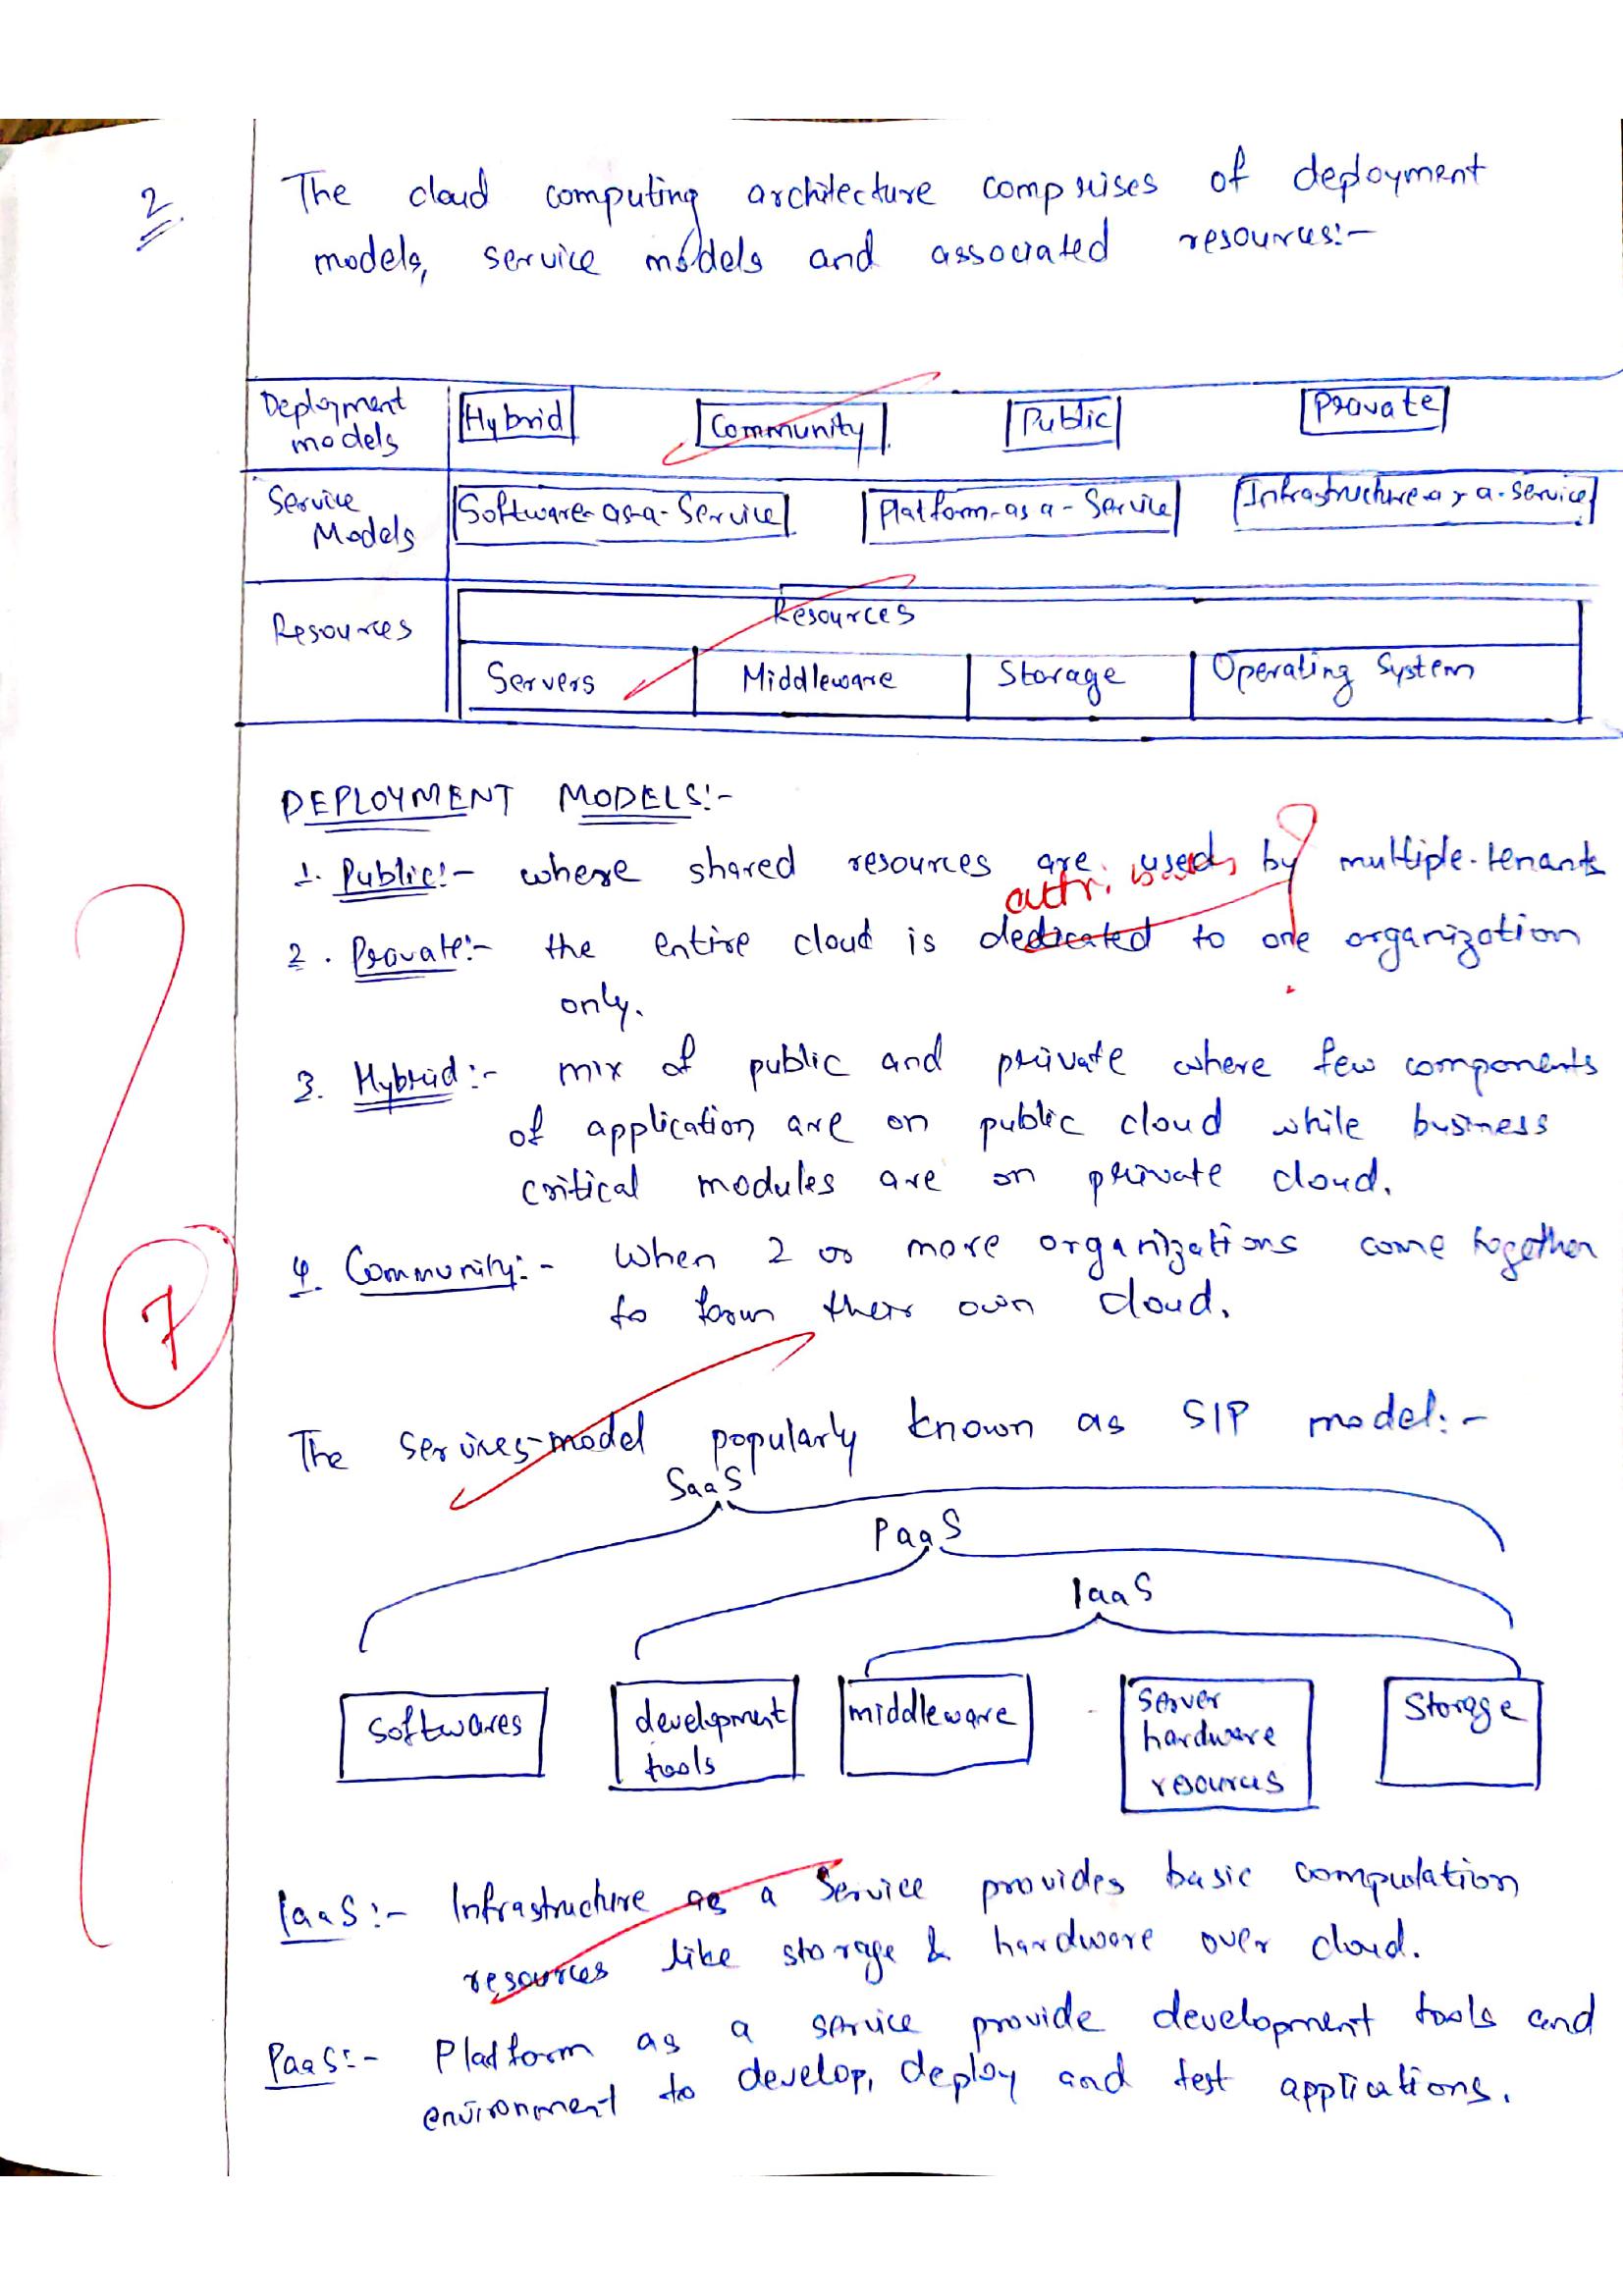 2.
The cloud computing architecture comprises of deployment
models, service models and associated resources:-
Deployment models Hybrid Community Public Private
Service Models Software-as-a-Service Platform-as a-Service Infrastructure-as a-service
Resources
Resources
Servers Middleware Storage Operating System
DEPLOYMENT MODELS:-
1. Public:- where shared resources are used by multiple-tenants
2. Private:- the entire cloud is dedicated to one organization
only.
3. Hybrid:- mix of public and private where few components
of application are on public cloud while business
critical modules are on private cloud.
7
4. Community:- When 2 or more organizations come together
to form their own cloud.
The services-model popularly known as SIP model:-
SaaS
PaaS
IaaS
softwares
development tools
middleware
Server hardware resources
Storage
IaaS:- Infrastructure as a Service provides basic computation
resources like storage & hardware over cloud.
PaaS:- Platform as a service provide development tools and
environment to develop, deploy and test applications.